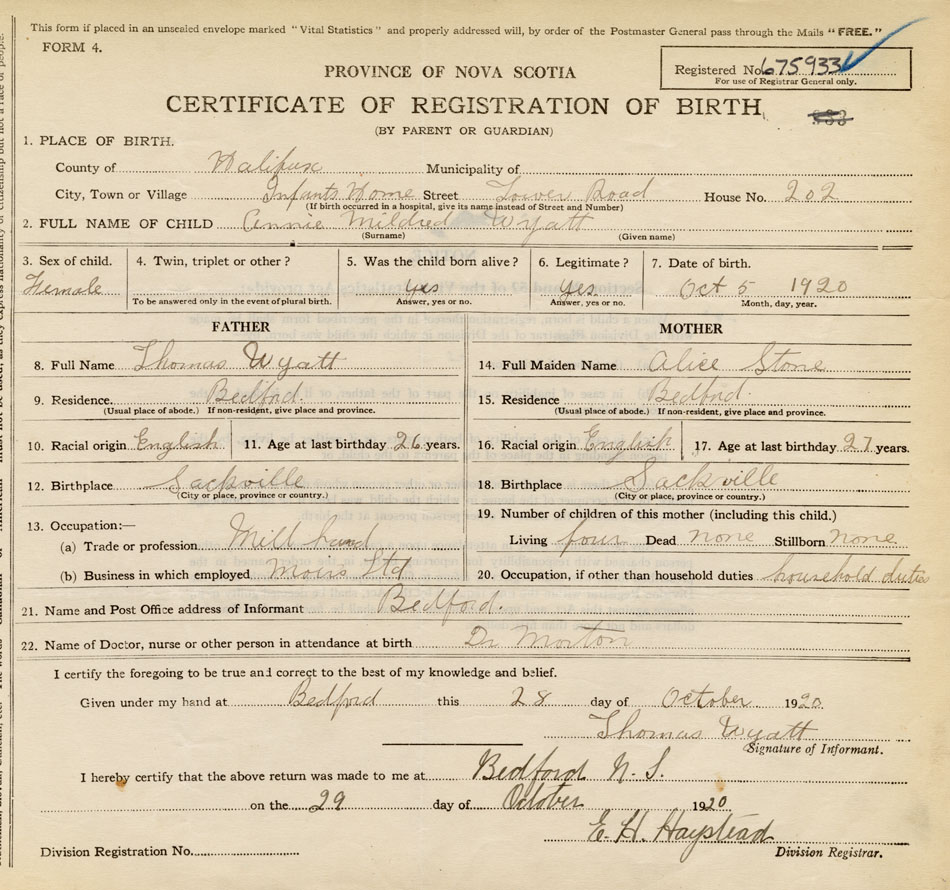 This form if placed in an unsealed envelope marked "Vital Statistics" and properly addressed will, by order of the Postmaster General pass through the Mails "FREE."
FORM 4.
Registered No. 675933
For use of Registrar General only.
PROVINCE OF NOVA SCOTIA
CERTIFICATE OF REGISTRATION OF BIRTH
(BY PARENT OR GUARDIAN)
1. PLACE OF BIRTH.
County of Halifax Municipality of
City, Town or Village Infants Home Street Tower Road House No. 202
(If birth occurred in a hospital, give its name instead of Street and Number)
2. FULL NAME OF CHILD Annie Mildred Wyatt
(Surname) (Given name)
3. Sex of child. 4. Twin, triplet or other? 5. Was the child born alive? 6. Legitimate? 7. Date of birth.
Female yes yes. Oct 5 1920
To be answered only in the event of plural birth. Answer, yes or no. Answer, yes or no. Month, day, year.
FATHER MOTHER
8. Full Name Thomas Wyatt 14. Full Maiden Name Alice Stone
9. Residence. Bedford. 15. Residence Bedford.
(Usual place of abode.) If non-resident, give place and province. (Usual place of abode.) If non-resident, give place and province.
10. Racial origin English 11. Age at last birthday 26 years. 16. Racial origin English 17. Age at last birthday 27 years.
12. Birthplace Sackville 18. Birthplace Sackville
(City or place, province or country.) (City or place, province or country.)
13. Occupation:— 19. Number of children of this mother (including this child.)
(a) Trade or profession Mill hand Living four Dead none Stillborn none
(b) Business in which employed Moirs Ltd 20. Occupation, if other than household duties household duties
21. Name and Post Office address of Informant Bedford.
22. Name of Doctor, nurse or other person in attendance at birth Dr Morton
I certify the foregoing to be true and correct to the best of my knowledge and belief.
Given under my hand at Bedford this 28 day of October 1920.
Thomas Wyatt
Signature of Informant.
I hereby certify that the above return was made to me at Bedford N. S.
on the 29 day of October 1920
E. H. Haystead
Division Registration No. Division Registrar.